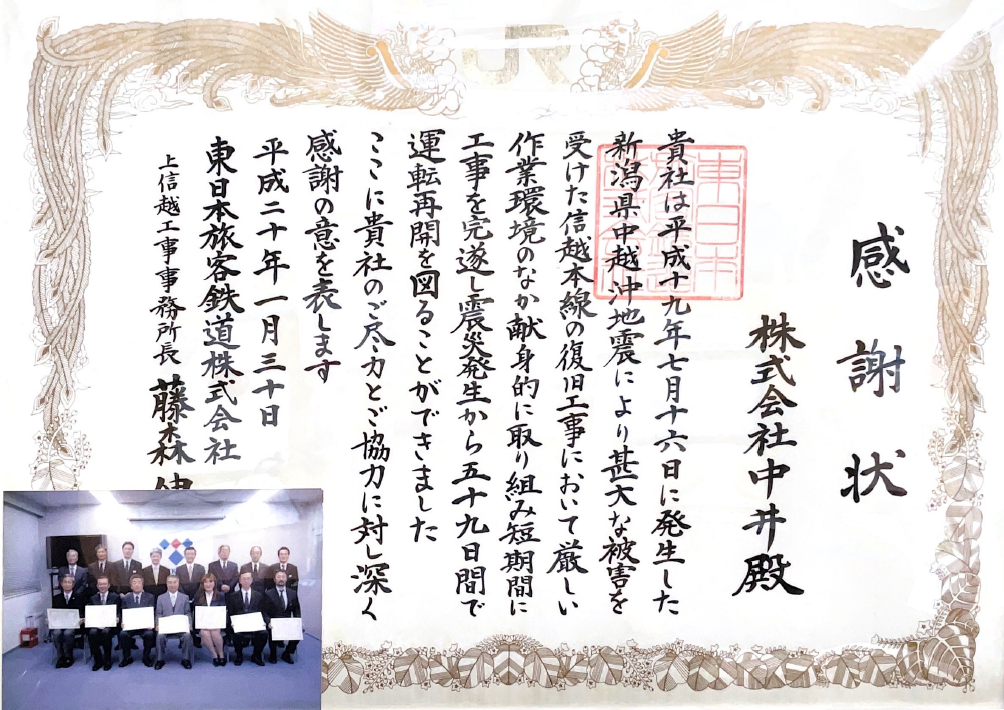 JR
感謝状
株式会社中井殿
貴社は平成十九年七月十六日に発生した
新潟県中越沖地震により甚大な被害を
受けた信越本線の復旧工事において厳しい
作業環境のなか献身的に取り組み短期間に
工事を完遂し震災発生から五十九日間で
運転再開を図ることができました
ここに貴社のご尽力とご協力に対し深く
感謝の意を表します
平成二十年一月三十日
東日本旅客鉄道株式会社
上信越工事事務所長 藤森伸